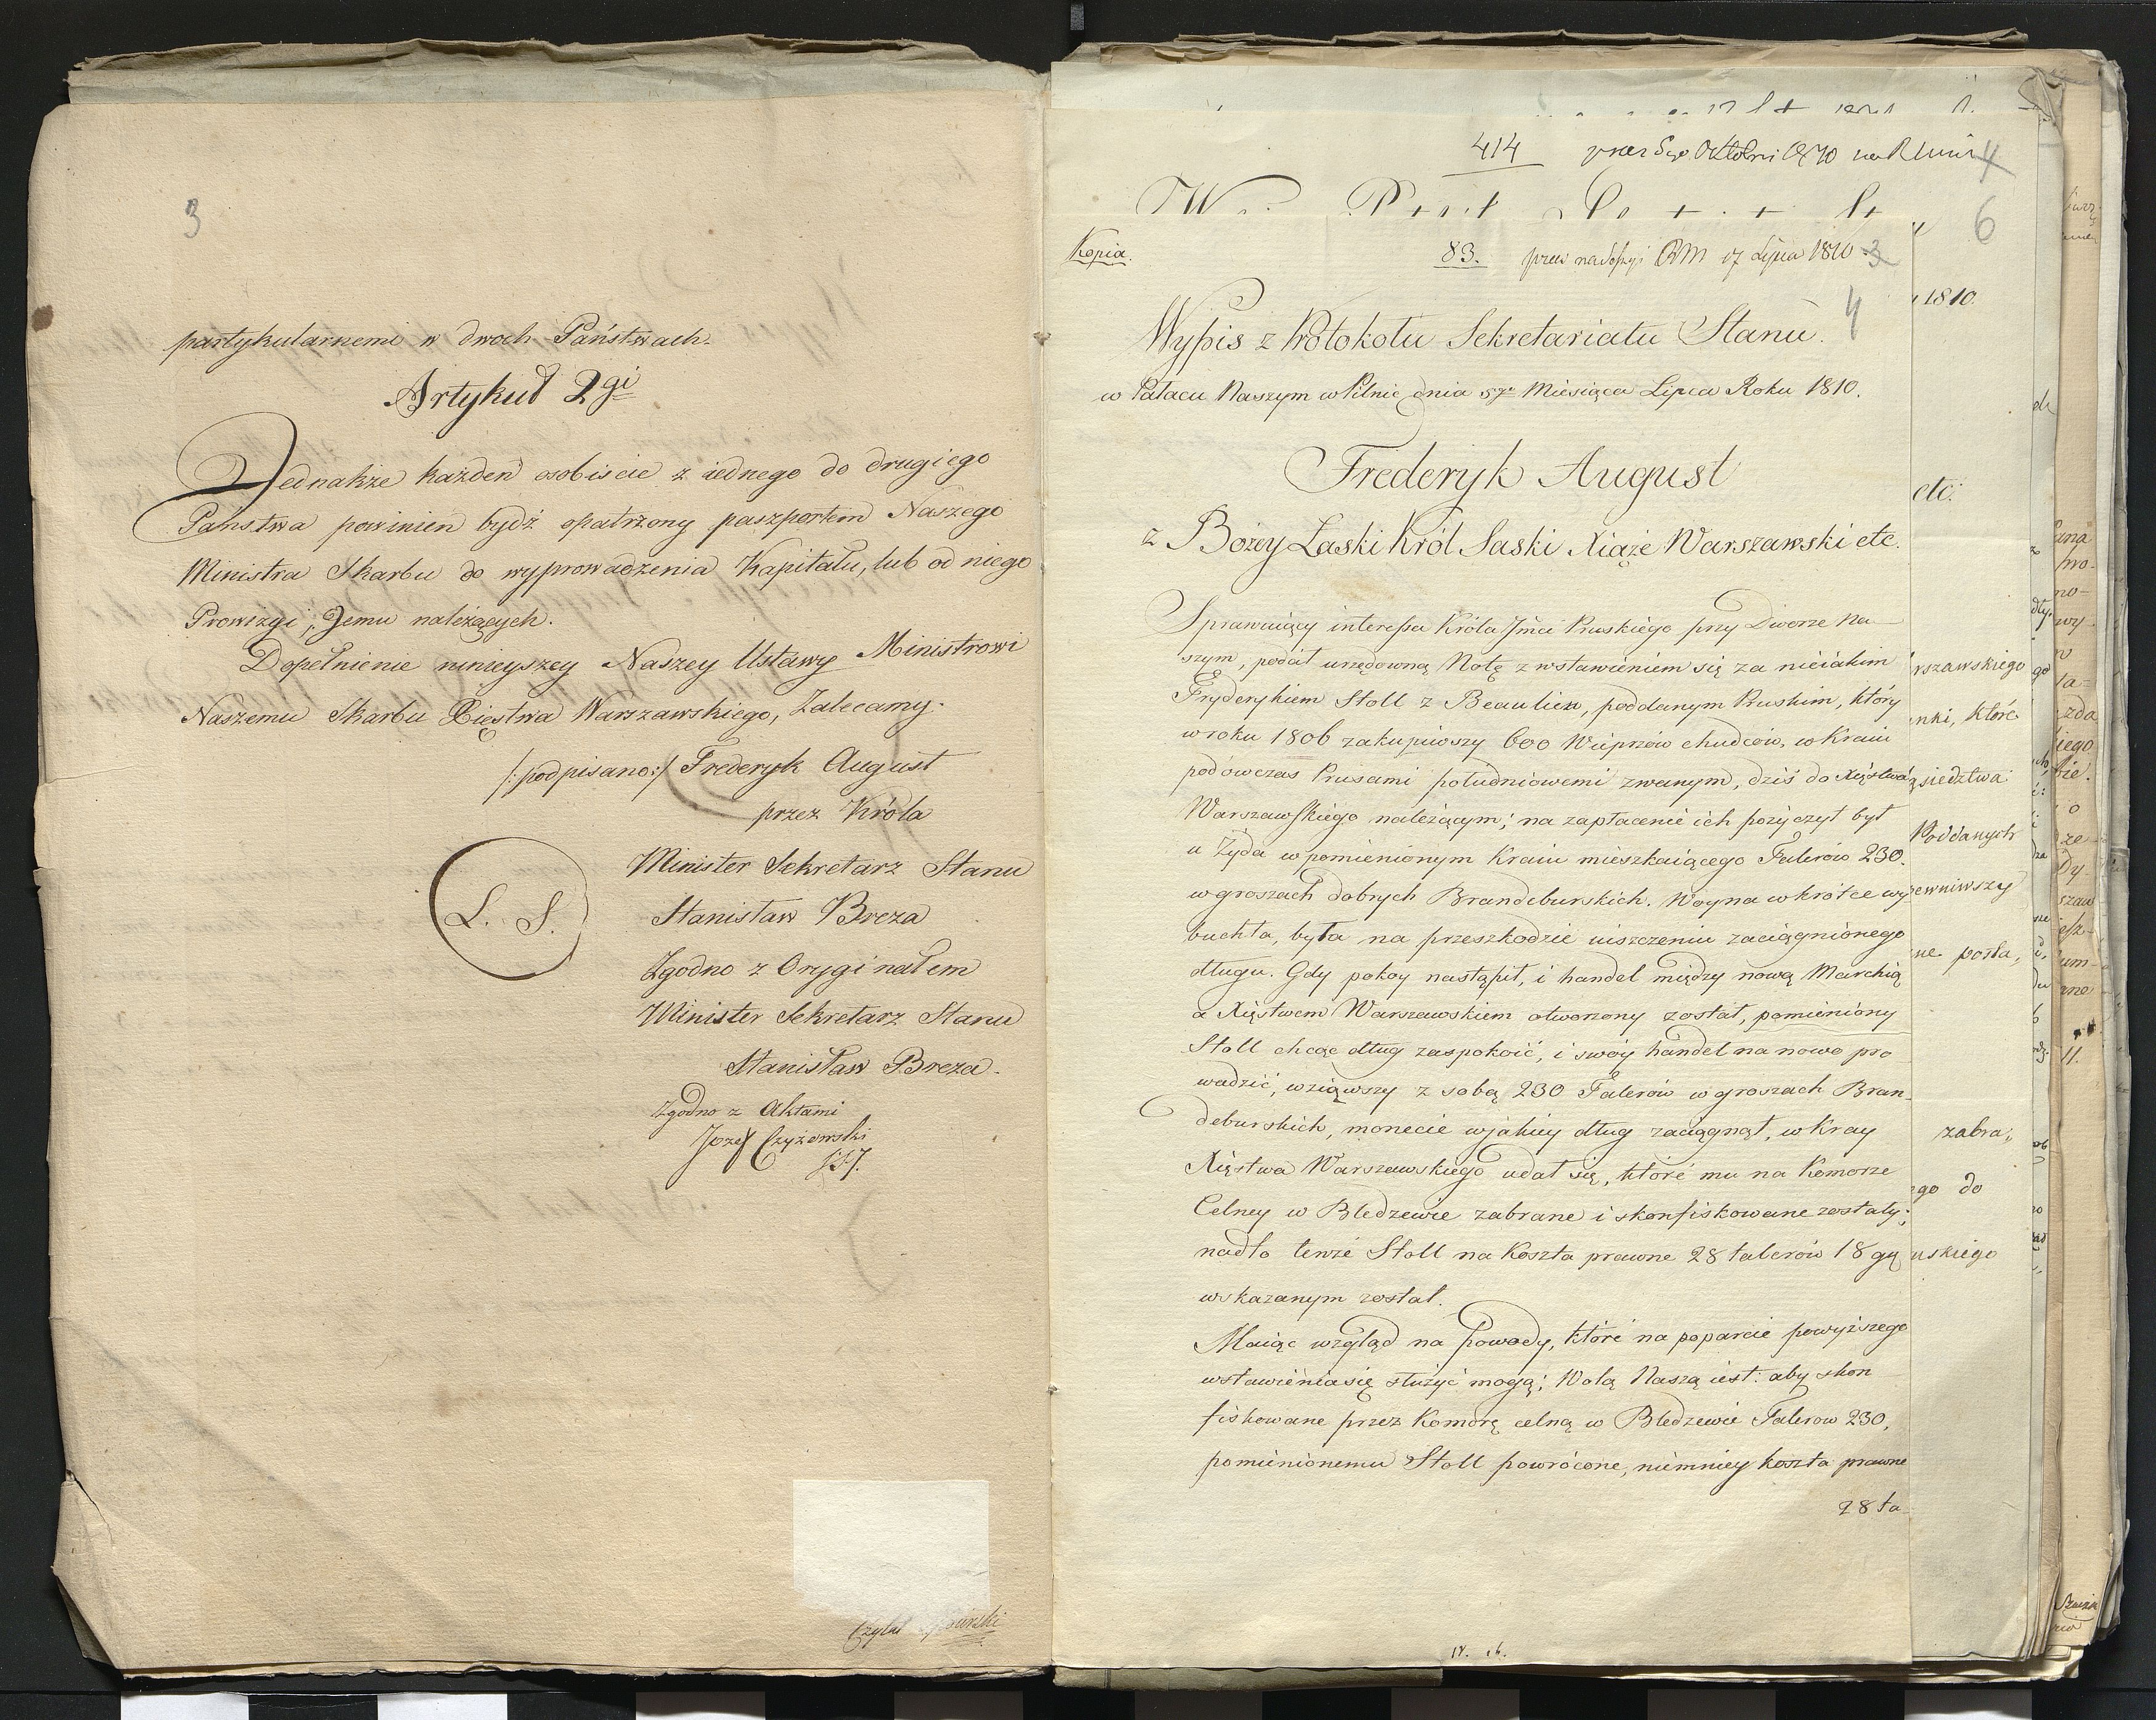 3
partykularnemi w dwoch Państwach.
Artykuł 2gi
Jednakże każden osobiście z iednego do drugiego
Państwa powinien bydź opatrzony paszportem Naszego
Ministra Skarbu do wyprowadzenia Kapitału, lub od niego
Prowizyi, Jemu należących.
Dopełnienie ninieyszey Naszey Ustawy Ministrowi
Naszemu Skarbu Xięstwa Warszawskiego, Zalecamy.
/:podpisano:/ Frederyk August
przez Króla
Minister Sekretarz Stanu
L. S.
Stanisław Breza
Zgodno z Oryginałem
Minister Sekretarz Stanu
Stanisław Breza.
Zgodno z Aktami
Jozef Czyżewski
Czytał
414
4
6
Kopia.
83. 17 Lipca 1810 3
4
Wypis z Protokołu Sekretariatu Stanu.
w Pałacu Naszym w Pilnic dnia 5go Miesiąca Lipca Roku 1810.
Frederyk August
z Bożey Łaski Król Saski Xiąże Warszawski etc.
Sprawuiący interessa Króla Jmci Pruskiego przy Dworze Na
szym, podał urzędowną Notę z wstawieniem się za nieiakim
Fryderykiem Stoll z Beaulieu, poddanym Pruskim, który
w roku 1806 zakupiwszy 600 Wieprzów chudców, w Kraiu
podówczas Prusami południowemi zwanym, dziś do Xięstwa
Warszawskiego należącym; na zapłacenie ich pożyczył był
u Żyda w pomienionym Kraiu mieszkaiącego Talerów 230.
w groszach dobrych Brandeburskich. Woyna wkrótce wy
buchła, była na przeszkodzie uiszczeniu zaciągnionego
długu. Gdy pokoy nastąpił, i handel między nową Marchią
a Xięstwem Warszawskiem otworzony został, pomieniony
Stoll chcąc dług zaspokoić, i swóy handel na nowo pro
wadzić, wziąwszy z sobą 230 Talerów w groszach Bran
deburskich, monecie w jakiey dług zaciągnął, w Kray
Xięstwa Warszawskiego udał się, które mu na Komorze
Celney w Bledzewie zabrane i skonfiskowane zostały;
nadto tenże Stoll na Koszta prawne 28 talerów 18 gg
wskazanym został.
Maiąc wzgląd na Powody, które na poparcie powyższego
wstawienia się służyć mogą; Wolą Naszą iest: aby skon
fiskowane przez Komorę celną w Bledzewie Talerow 230,
pomienionemu Stoll powrócone, niemniey koszta prawne
28 ta
1810.
etc.
rszawskiego
nki, które
siedztwa
Poddanych
ewniwszy
ne posła,
zabra,,
go do
uskiego